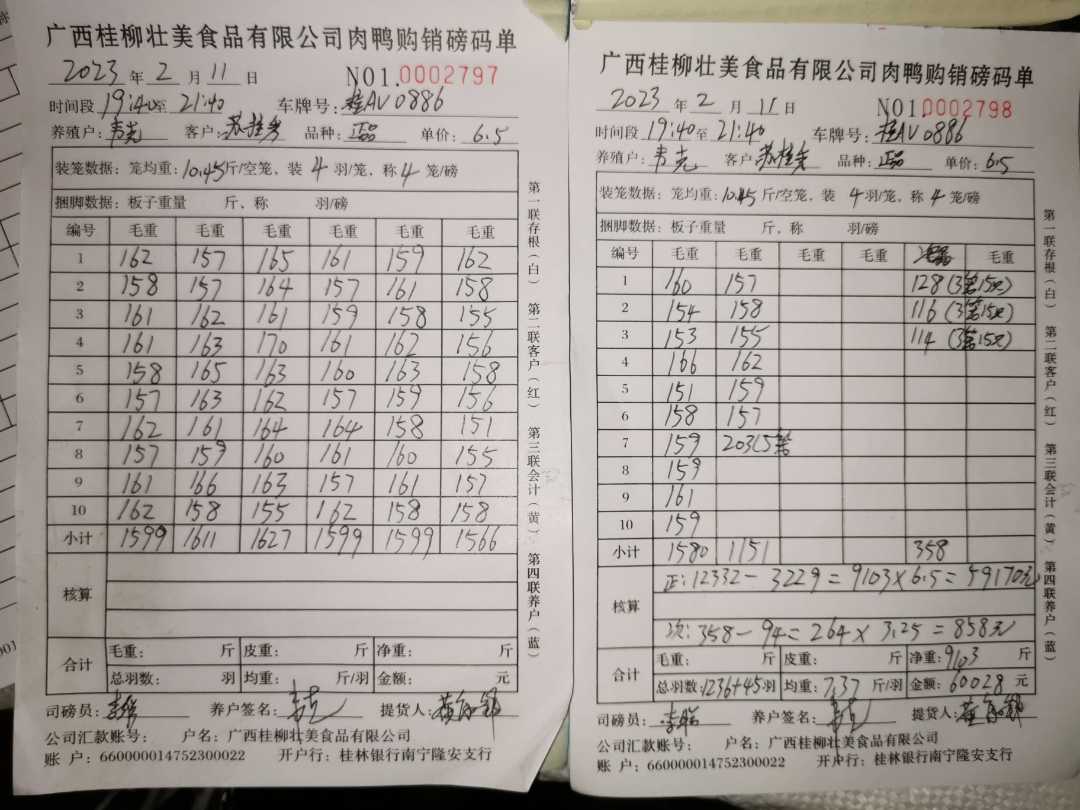 广西桂柳壮美食品有限公司肉鸭购销磅码单
2023 年 2 月 11 日 NO1.0002797
时间段 19:40至 21:40 车牌号: 桂AV0886
养殖户: 韦克 客户: 苏桂 品种: 正品 单价: 6.5
装笼数据: 笼均重: 10.45斤/空笼、装 4 羽/笼、称 4 笼/磅
捆脚数据: 板子重量 斤、称 羽/磅
编号 毛重 毛重 毛重 毛重 毛重 毛重
1 162 157 165 161 159 162
2 158 157 164 157 161 158
3 161 162 161 159 158 155
4 161 163 170 161 162 156
5 158 165 163 160 163 158
6 157 163 162 157 159 156
7 162 161 164 164 158 151
8 157 159 160 161 160 155
9 161 166 163 157 161 157
10 162 158 155 162 158 158
小计 1599 1611 1627 1599 1599 1566
核算
合计 毛重: 斤 皮重: 斤 净重: 斤
总羽数: 羽 均重: 斤/羽 金额: 元
司磅员: 养户签名: 韦克 提货人:
公司汇款账号: 户名: 广西桂柳壮美食品有限公司
账 户: 660000014752300022 开户行: 桂林银行南宁隆安支行
第一联存根(白) 第二联客户(红) 第三联会计(黄) 第四联养户(蓝)
广西桂柳壮美食品有限公司肉鸭购销磅码单
2023 年 2 月 11 日 NO1.0002798
时间段 19:40至 21:40 车牌号: 桂AV0886
养殖户: 韦克 客户: 苏桂 品种: 正品 单价: 6.5
装笼数据: 笼均重: 10.45斤/空笼、装 4 羽/笼、称 4 笼/磅
捆脚数据: 板子重量 斤、称 羽/磅
编号 毛重 毛重 毛重 毛重 毛重
1 160 157 128 (3笼15只)
2 154 158 116 (3笼15只)
3 153 155 114 (3笼15只)
4 166 162
5 151 159
6 158 157
7 159 203(5笼
8 159
9 161
10 159
小计 1580 1151 358
核算 正: 12332 - 3229 = 9103 × 6.5 = 59170元
次: 358 - 94 = 264 × 3.25 = 858元
合计 毛重: 斤 皮重: 斤 净重: 9103 斤
总羽数: 1236+45羽 均重: 7.37 斤/羽 金额: 60028 元
司磅员: 养户签名: 韦克 提货人:
公司汇款账号: 户名: 广西桂柳壮美食品有限公司
账 户: 660000014752300022 开户行: 桂林银行南宁隆安支行
第一联存根(白) 第二联客户(红) 第三联会计(黄) 第四联养户(蓝)